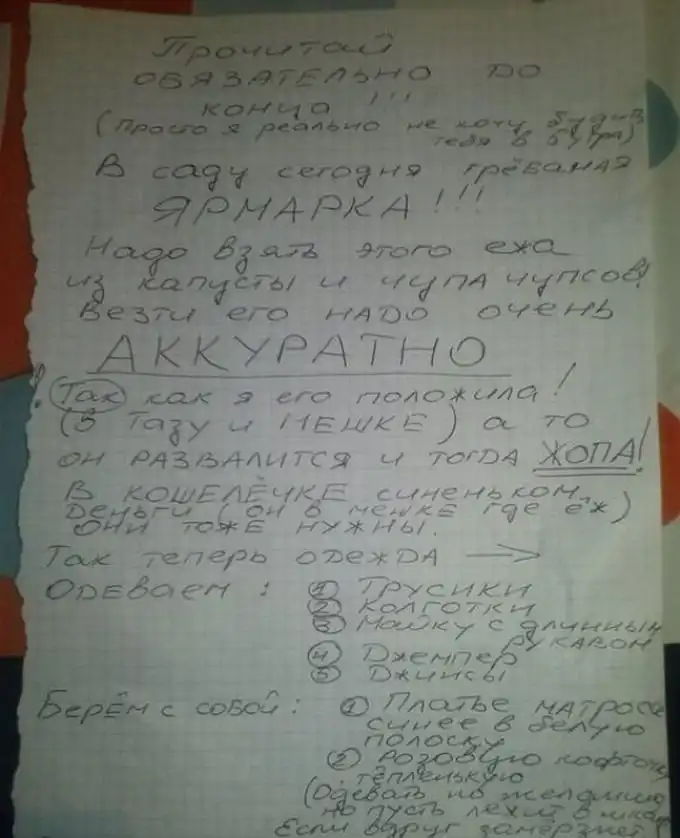 Прочитай
ОБЯЗАТЕЛЬНО ДО
конца !!!
(просто я реально не хочу будить
тебя в 6 утра)
В саду сегодня грёбаная
ЯРМАРКА!!!
Надо взять этого ежа
из капусты и чупа чупсов!
Везти его НАДО очень
АККУРАТНО
! Так как я его положила!
(В Тазу и МЕШКЕ) а то
он РАЗВАЛИТСЯ и тогда ЖОПА!
В КОШЕЛЁЧКЕ синеньком
Деньги (он в мешке где ёж)
они тоже нужны.
Так теперь одежда →
Одеваем: 1 Трусики
2 Колготки
3 Майку с длинным
рукавом
4 Джемпер
5 Джинсы
Берём с собой: 1 Платье матроса
синее в белую
полоску
2 Розовую кофточку
тёпленькую
(Одевать по желанию
но пусть лежит в шкафу
Если вдруг замёрзнет)